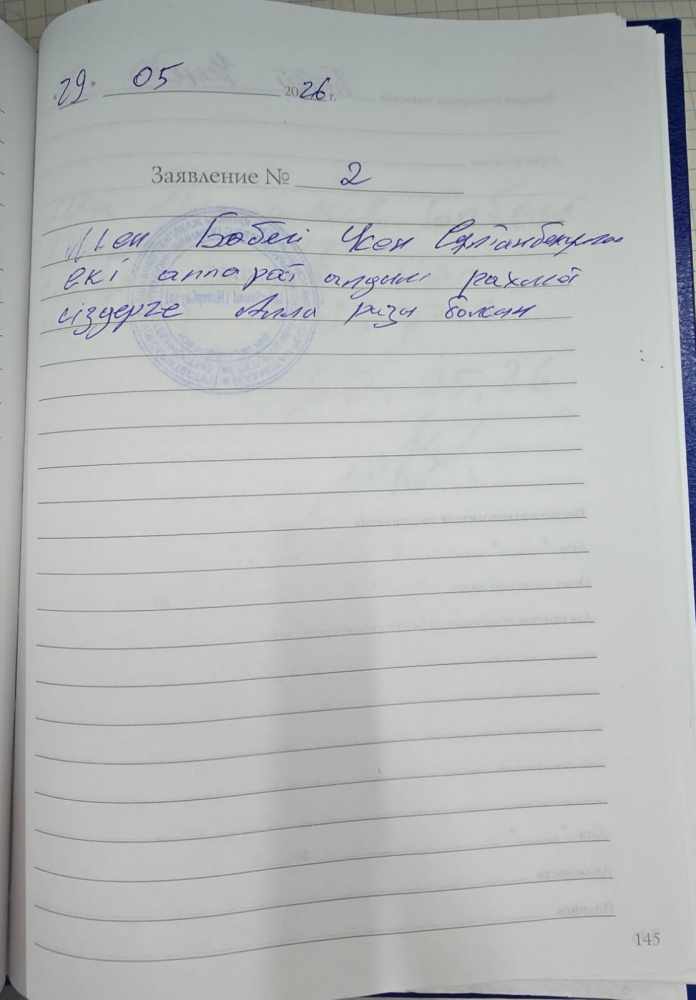 "29" 05 2026 г.
Заявление № 2
Мен Бәбей Үкен
екі аппарат алдым рахмет
сіздерге Алла разы болсын
145